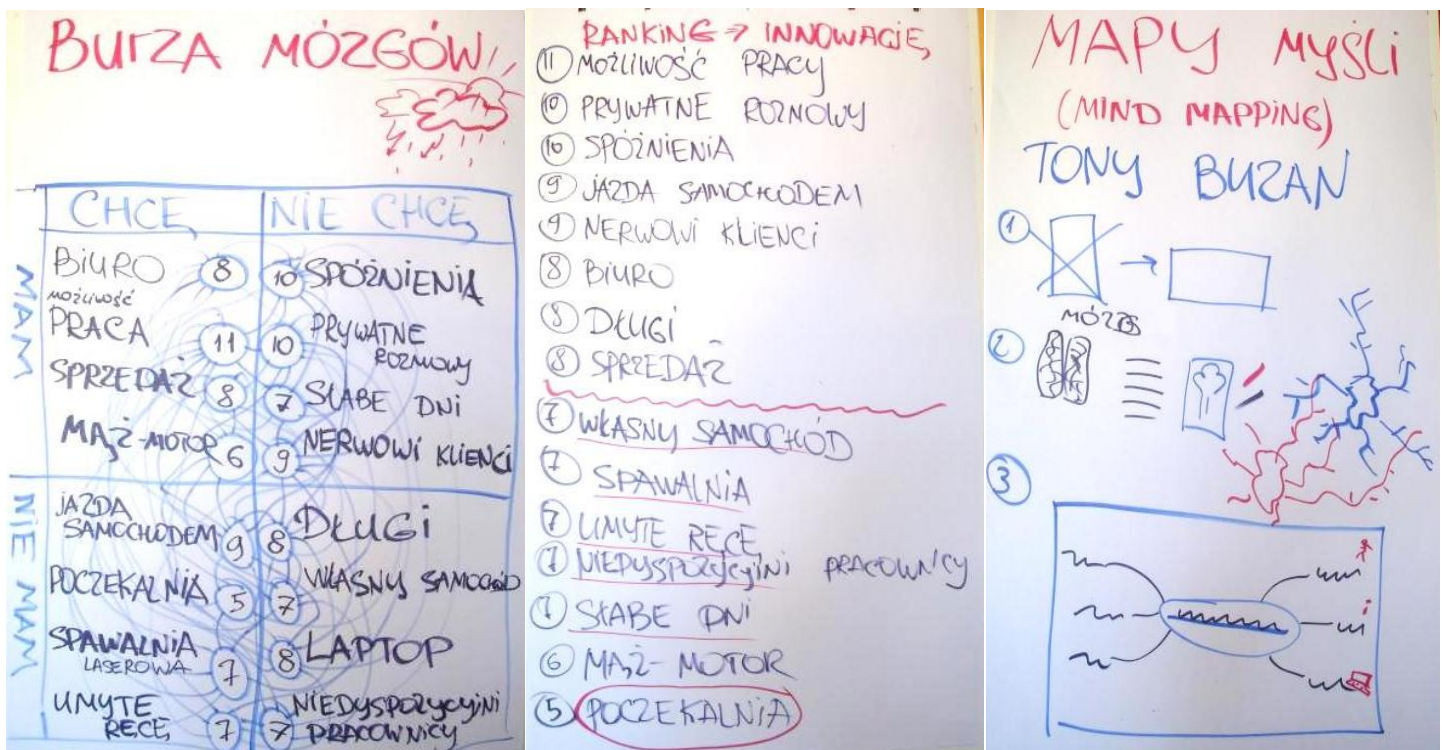 BURZA MÓZGÓW
CHCĘ
NIE CHCĘ
MAM
BIURO 8
10 SPÓŹNIENIA
możliwość
PRACA 11
10 PRYWATNE
ROZMOWY
SPRZEDAŻ 8
7 SŁABE DNI
MĄŻ-MOTOR 6
9 NERWOWI KLIENCI
NIE MAM
JAZDA
SAMOCHODEM 9
8 DŁUGI
POCZEKALNIA 5
7 WŁASNY SAMOCHÓD
SPAWALNIA
LASEROWA 7
8 LAPTOP
UMYTE
RĘCE 7
7 NIEDYSPOZYCYJNI
PRACOWNICY
RANKING → INNOWACJE
11 MOŻLIWOŚĆ PRACY
10 PRYWATNE ROZMOWY
10 SPÓŹNIENIA
9 JAZDA SAMOCHODEM
9 NERWOWI KLIENCI
8 BIURO
8 DŁUGI
8 SPRZEDAŻ
7 WŁASNY SAMOCHÓD
7 SPAWALNIA
7 UMYTE RĘCE
7 NIEDYSPOZYCYJNI PRACOWNICY
7 SŁABE DNI
6 MĄŻ-MOTOR
5 POCZEKALNIA
MAPY MYŚLI
(MIND MAPPING)
TONY BUZAN
1
MÓZG
2
3